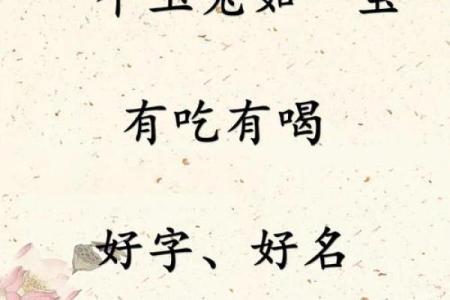 兔如
有吃有喝
好字、好名